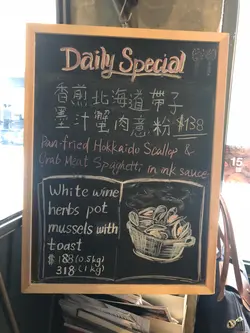 Daily Special
香煎北海道帶子
墨汁蟹肉意粉 $138
Pan-fried Hokkaido Scallop &
Crab Meat Spaghetti in ink sauce
White wine
herbs pot
mussels with
toast
$ 188 (0.5kg)
318 (1kg)
15